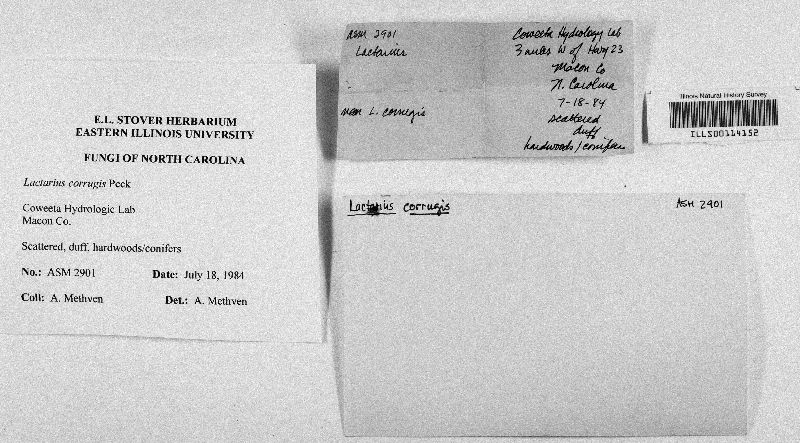 E.L. STOVER HERBARIUM
EASTERN ILLINOIS UNIVERSITY
FUNGI OF NORTH CAROLINA
Lactarius corrugis Peck
Coweeta Hydrologic Lab
Macon Co.
Scattered, duff, hardwoods/conifers
No.: ASM 2901 Date: July 18, 1984
Coll: A. Methven Det.: A. Methven
ASM 2901
Lactarius
near L. corrugis
Coweeta Hydrology Lab
3 miles W of Hwy 23
Macon Co
N. Carolina
7-18-84
scattered
duff
hardwoods/conifers
Illinois Natural History Survey
ILLS00114152
Lactarius corrugis ASM 2901